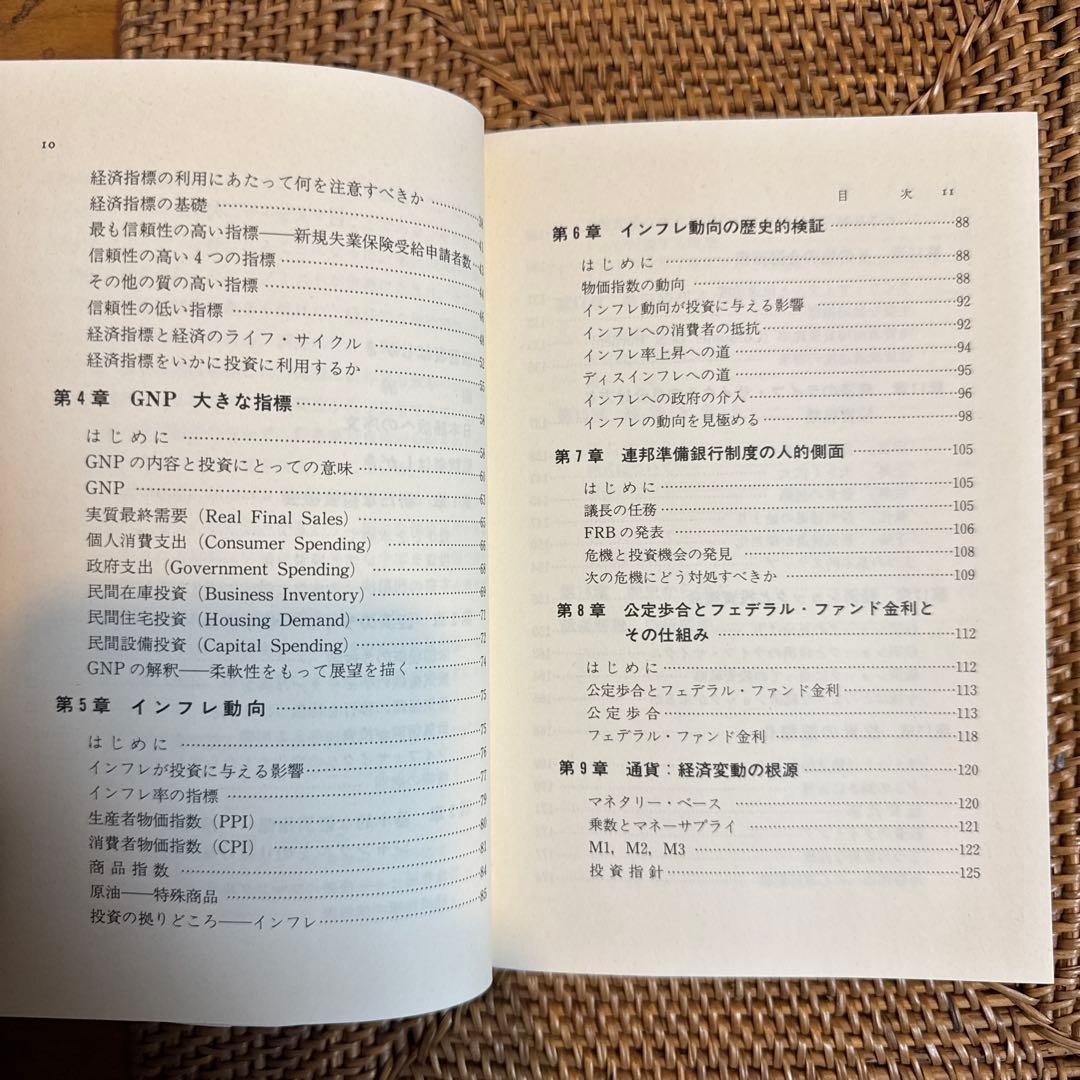 10
経済指標の利用にあたって何を注意すべきか
経済指標の基礎 ……41
最も信頼性の高い指標——新規失業保険受給申請者数…43
信頼性の高い4つの指標 ……44
その他の質の高い指標 ……46
信頼性の低い指標 ……49
経済指標と経済のライフ・サイクル ……52
経済指標をいかに投資に利用するか ……55
第4章 GNP 大きな指標 ……58
はじめに ……58
GNPの内容と投資にとっての意味 ……61
GNP ……63
実質最終需要（Real Final Sales） ……65
個人消費支出（Consumer Spending） ……66
政府支出（Government Spending） ……68
民間在庫投資（Business Inventory） ……69
民間住宅投資（Housing Demand） ……71
民間設備投資（Capital Spending） ……72
GNPの解釈——柔軟性をもって展望を描く ……74
第5章 インフレ動向 ……75
はじめに ……75
インフレが投資に与える影響 ……76
インフレ率の指標 ……77
生産者物価指数（PPI） ……79
消費者物価指数（CPI） ……80
商品指数 ……81
原油——特殊商品 ……84
投資の拠りどころ——インフレ ……85
目次 11
第6章 インフレ動向の歴史的検証 ……88
はじめに ……88
物価指数の動向 ……88
インフレ動向が投資に与える影響 ……92
インフレへの消費者の抵抗 ……92
インフレ率上昇への道 ……94
ディスインフレへの道 ……95
インフレへの政府の介入 ……96
インフレの動向を見極める ……98
第7章 連邦準備銀行制度の人的側面 ……105
はじめに ……105
議長の任務 ……105
FRBの発表 ……106
危機と投資機会の発見 ……108
次の危機にどう対処すべきか ……109
第8章 公定歩合とフェデラル・ファンド金利と
その仕組み ……112
はじめに ……112
公定歩合とフェデラル・ファンド金利 ……113
公定歩合 ……113
フェデラル・ファンド金利 ……118
第9章 通貨：経済変動の根源 ……120
マネタリー・ベース ……120
乗数とマネーサプライ ……121
M1, M2, M3 ……122
投資指針 ……125